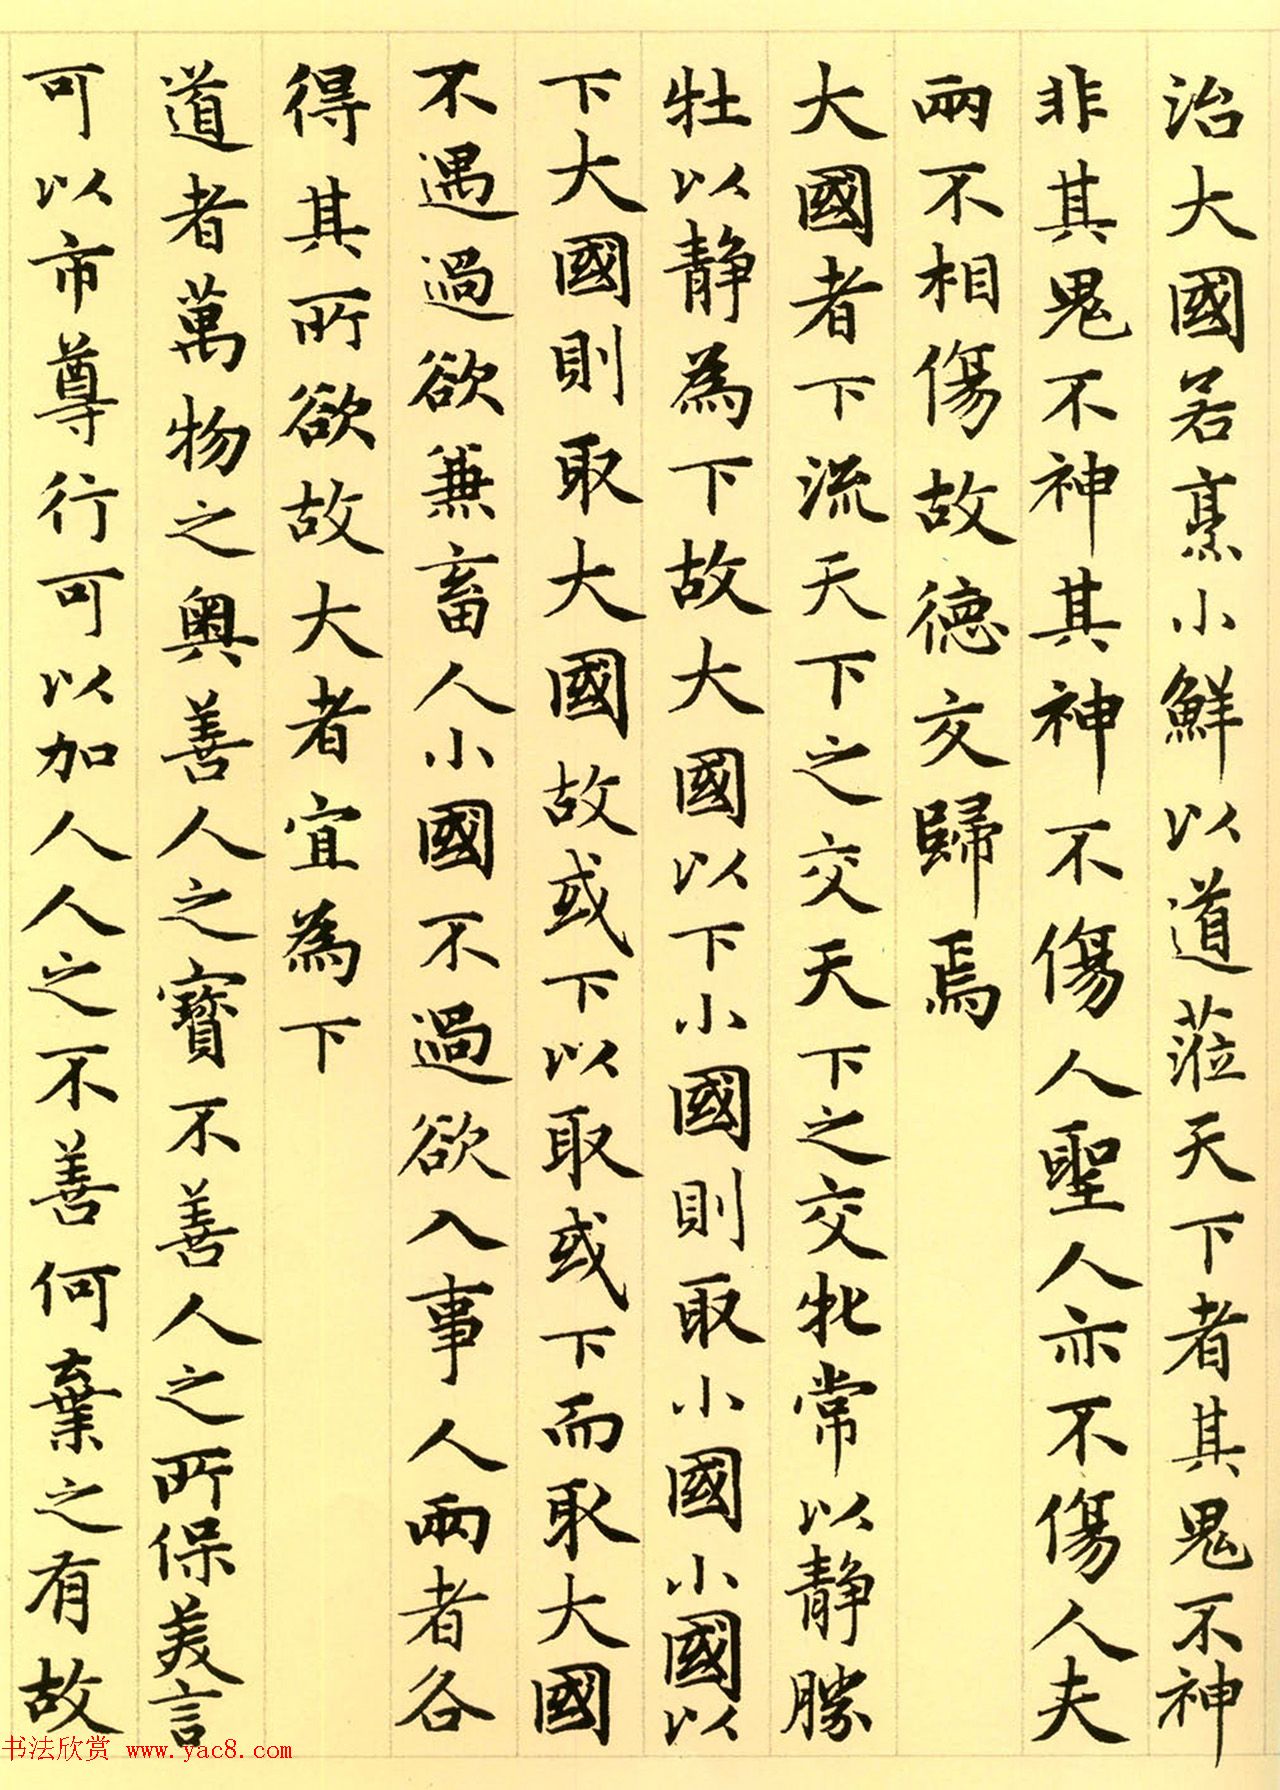 治大國若烹小鮮以道蒞天下者其鬼不神
非其鬼不神其神不傷人聖人亦不傷人夫
兩不相傷故德交歸焉
大國者下流天下之交天下之交牝常以靜勝
牡以靜為下故大國以下小國則取小國小國以
下大國則取大國故或下以取或下而取大國
不遇過欲兼畜人小國不過欲入事人兩者各
得其所欲故大者宜為下
道者萬物之奧善人之寶不善人之所保美言
可以市尊行可以加人人之不善何棄之有故
书法欣赏 www.yac8.com